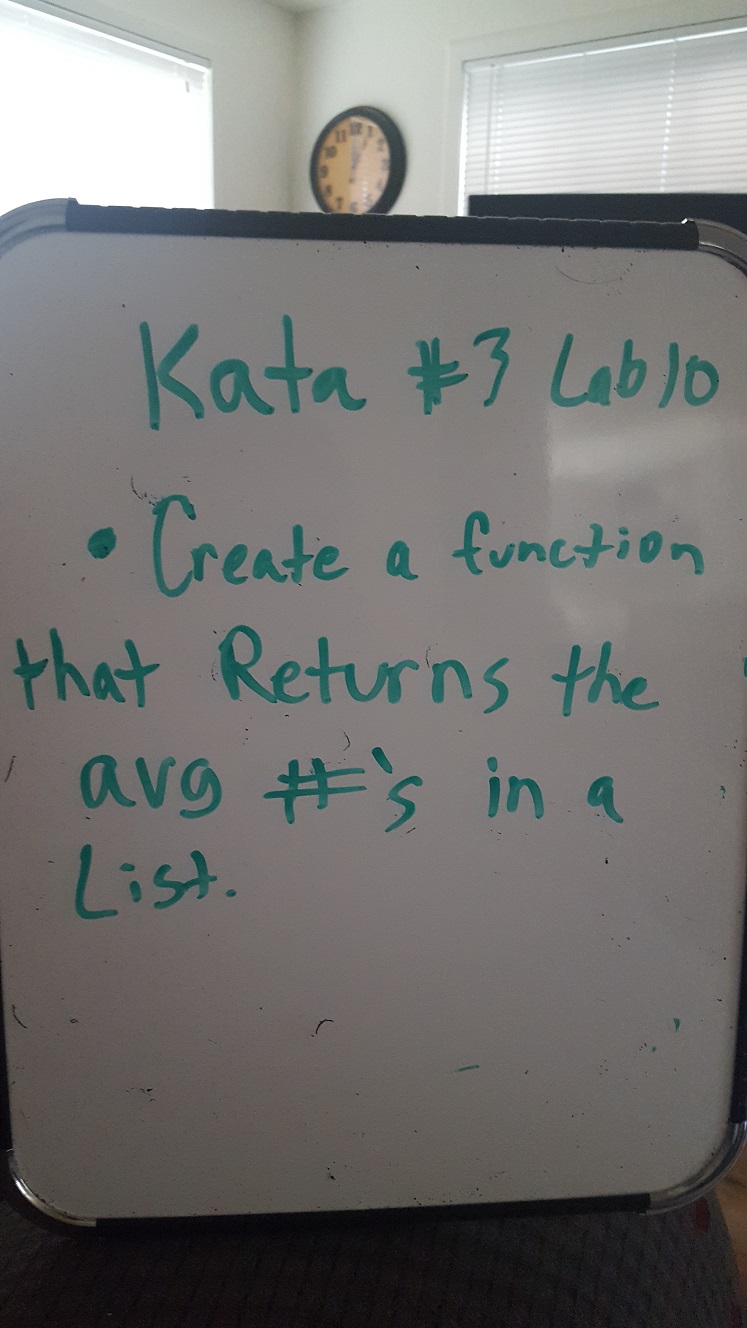 Kata #3 Lab 10
• Create a function
that Returns the
avg #'s in a
List.